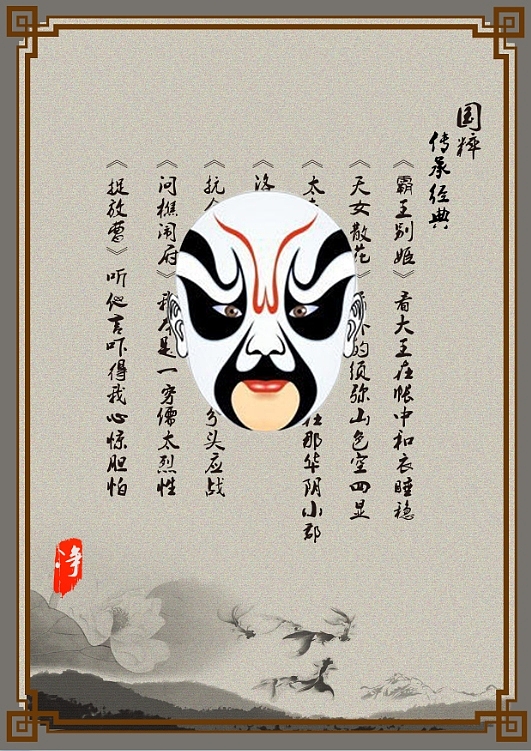 国粹
传承经典
《霸王别姬》看大王在帐中和衣睡稳
《天女散花》的须弥山色空四显
《太在那华阴小郡
《洛
《抗分头应战
《问樵闹府》我本是一穷儒太烈性
《捉放曹》听他言吓得我心惊胆怕
净